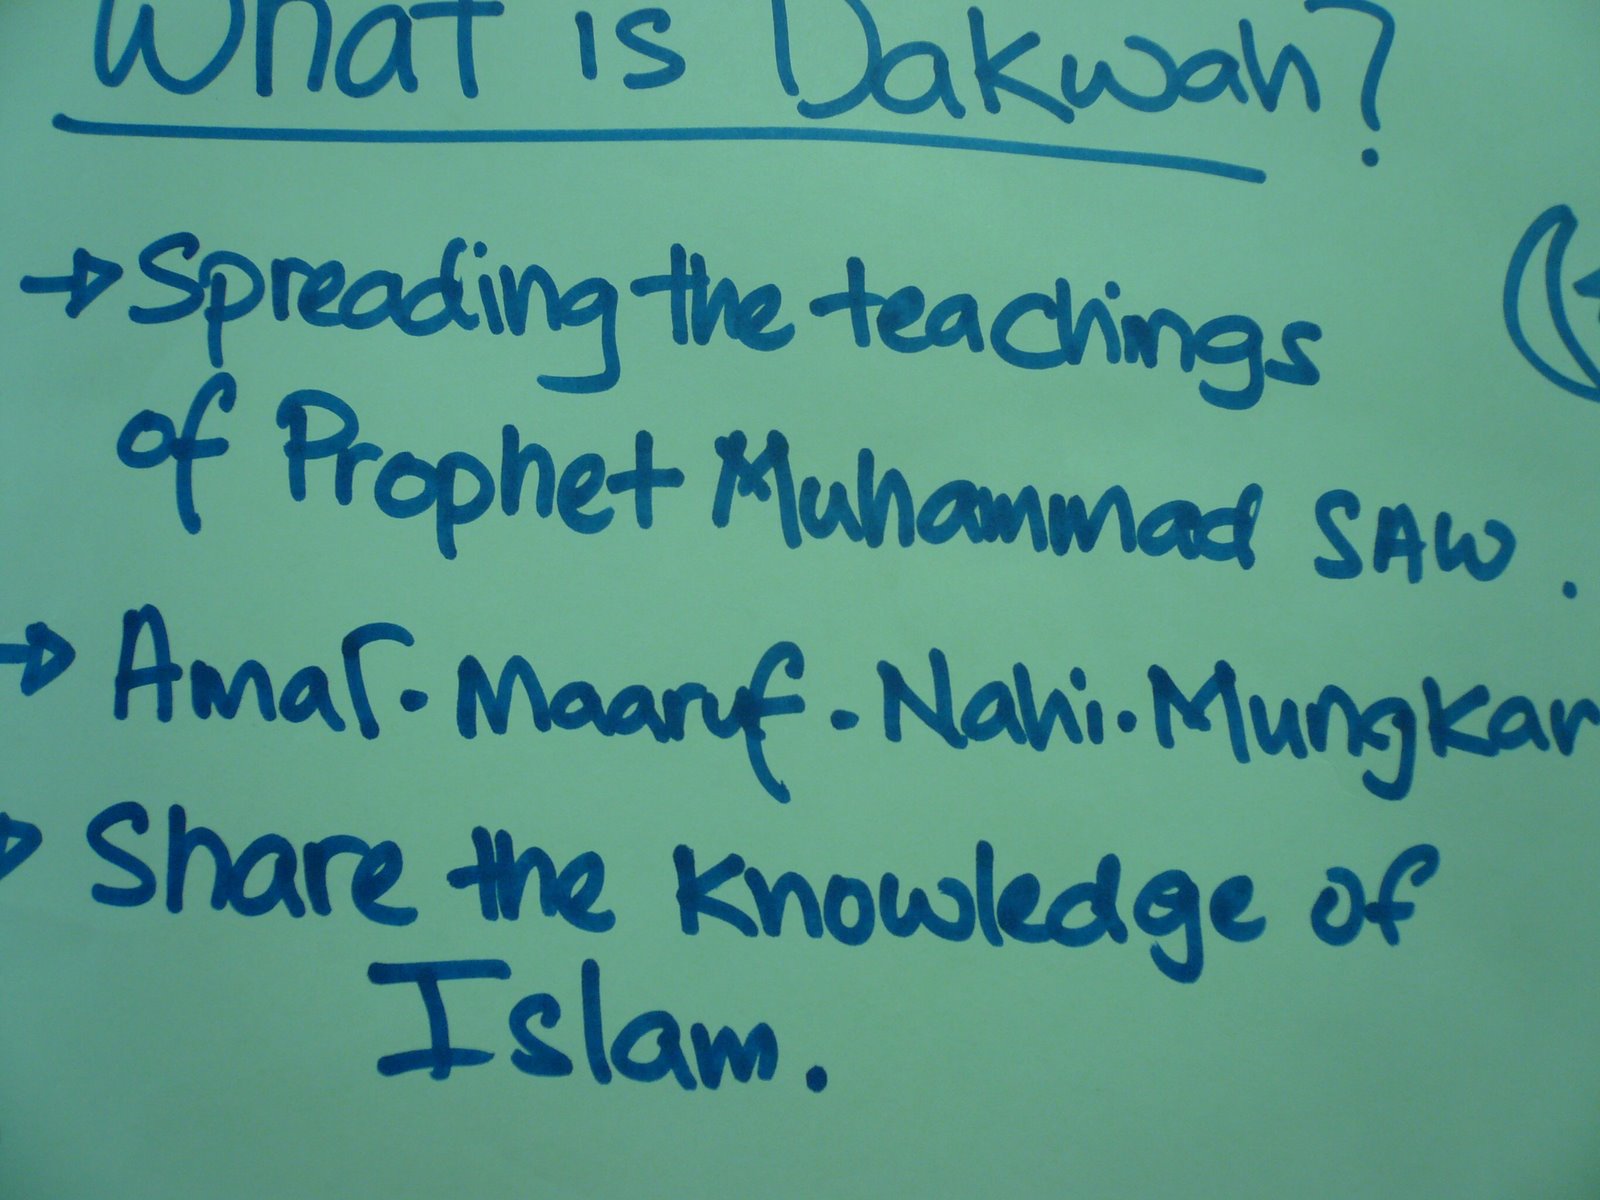 What is Dakwah?
→ Spreading the teachings
of Prophet Muhammad SAW.
→ Amar. Maaruf. Nahi. Mungkar
→ Share the knowledge of
Islam.